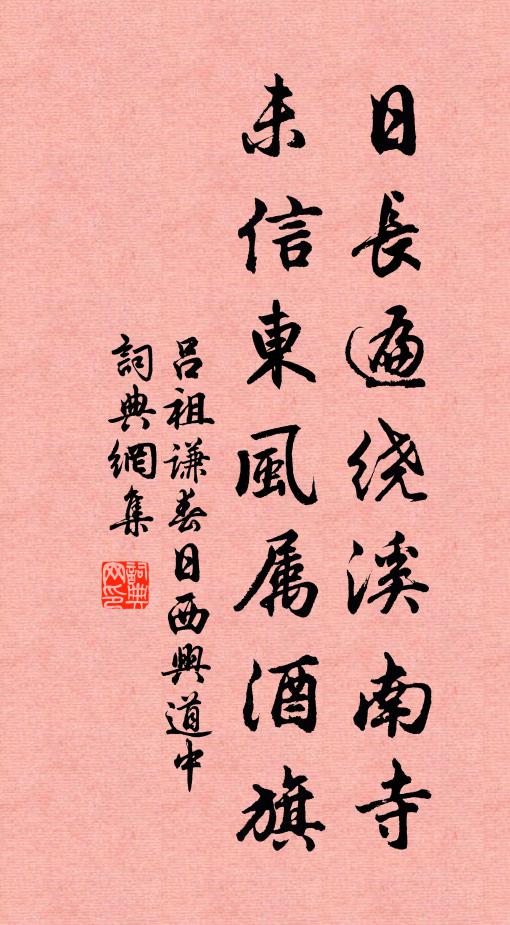 日長遍绕溪南寺
未信東風属酒旗
呂祖謙春日西興道中
詞典網集
詞典網印